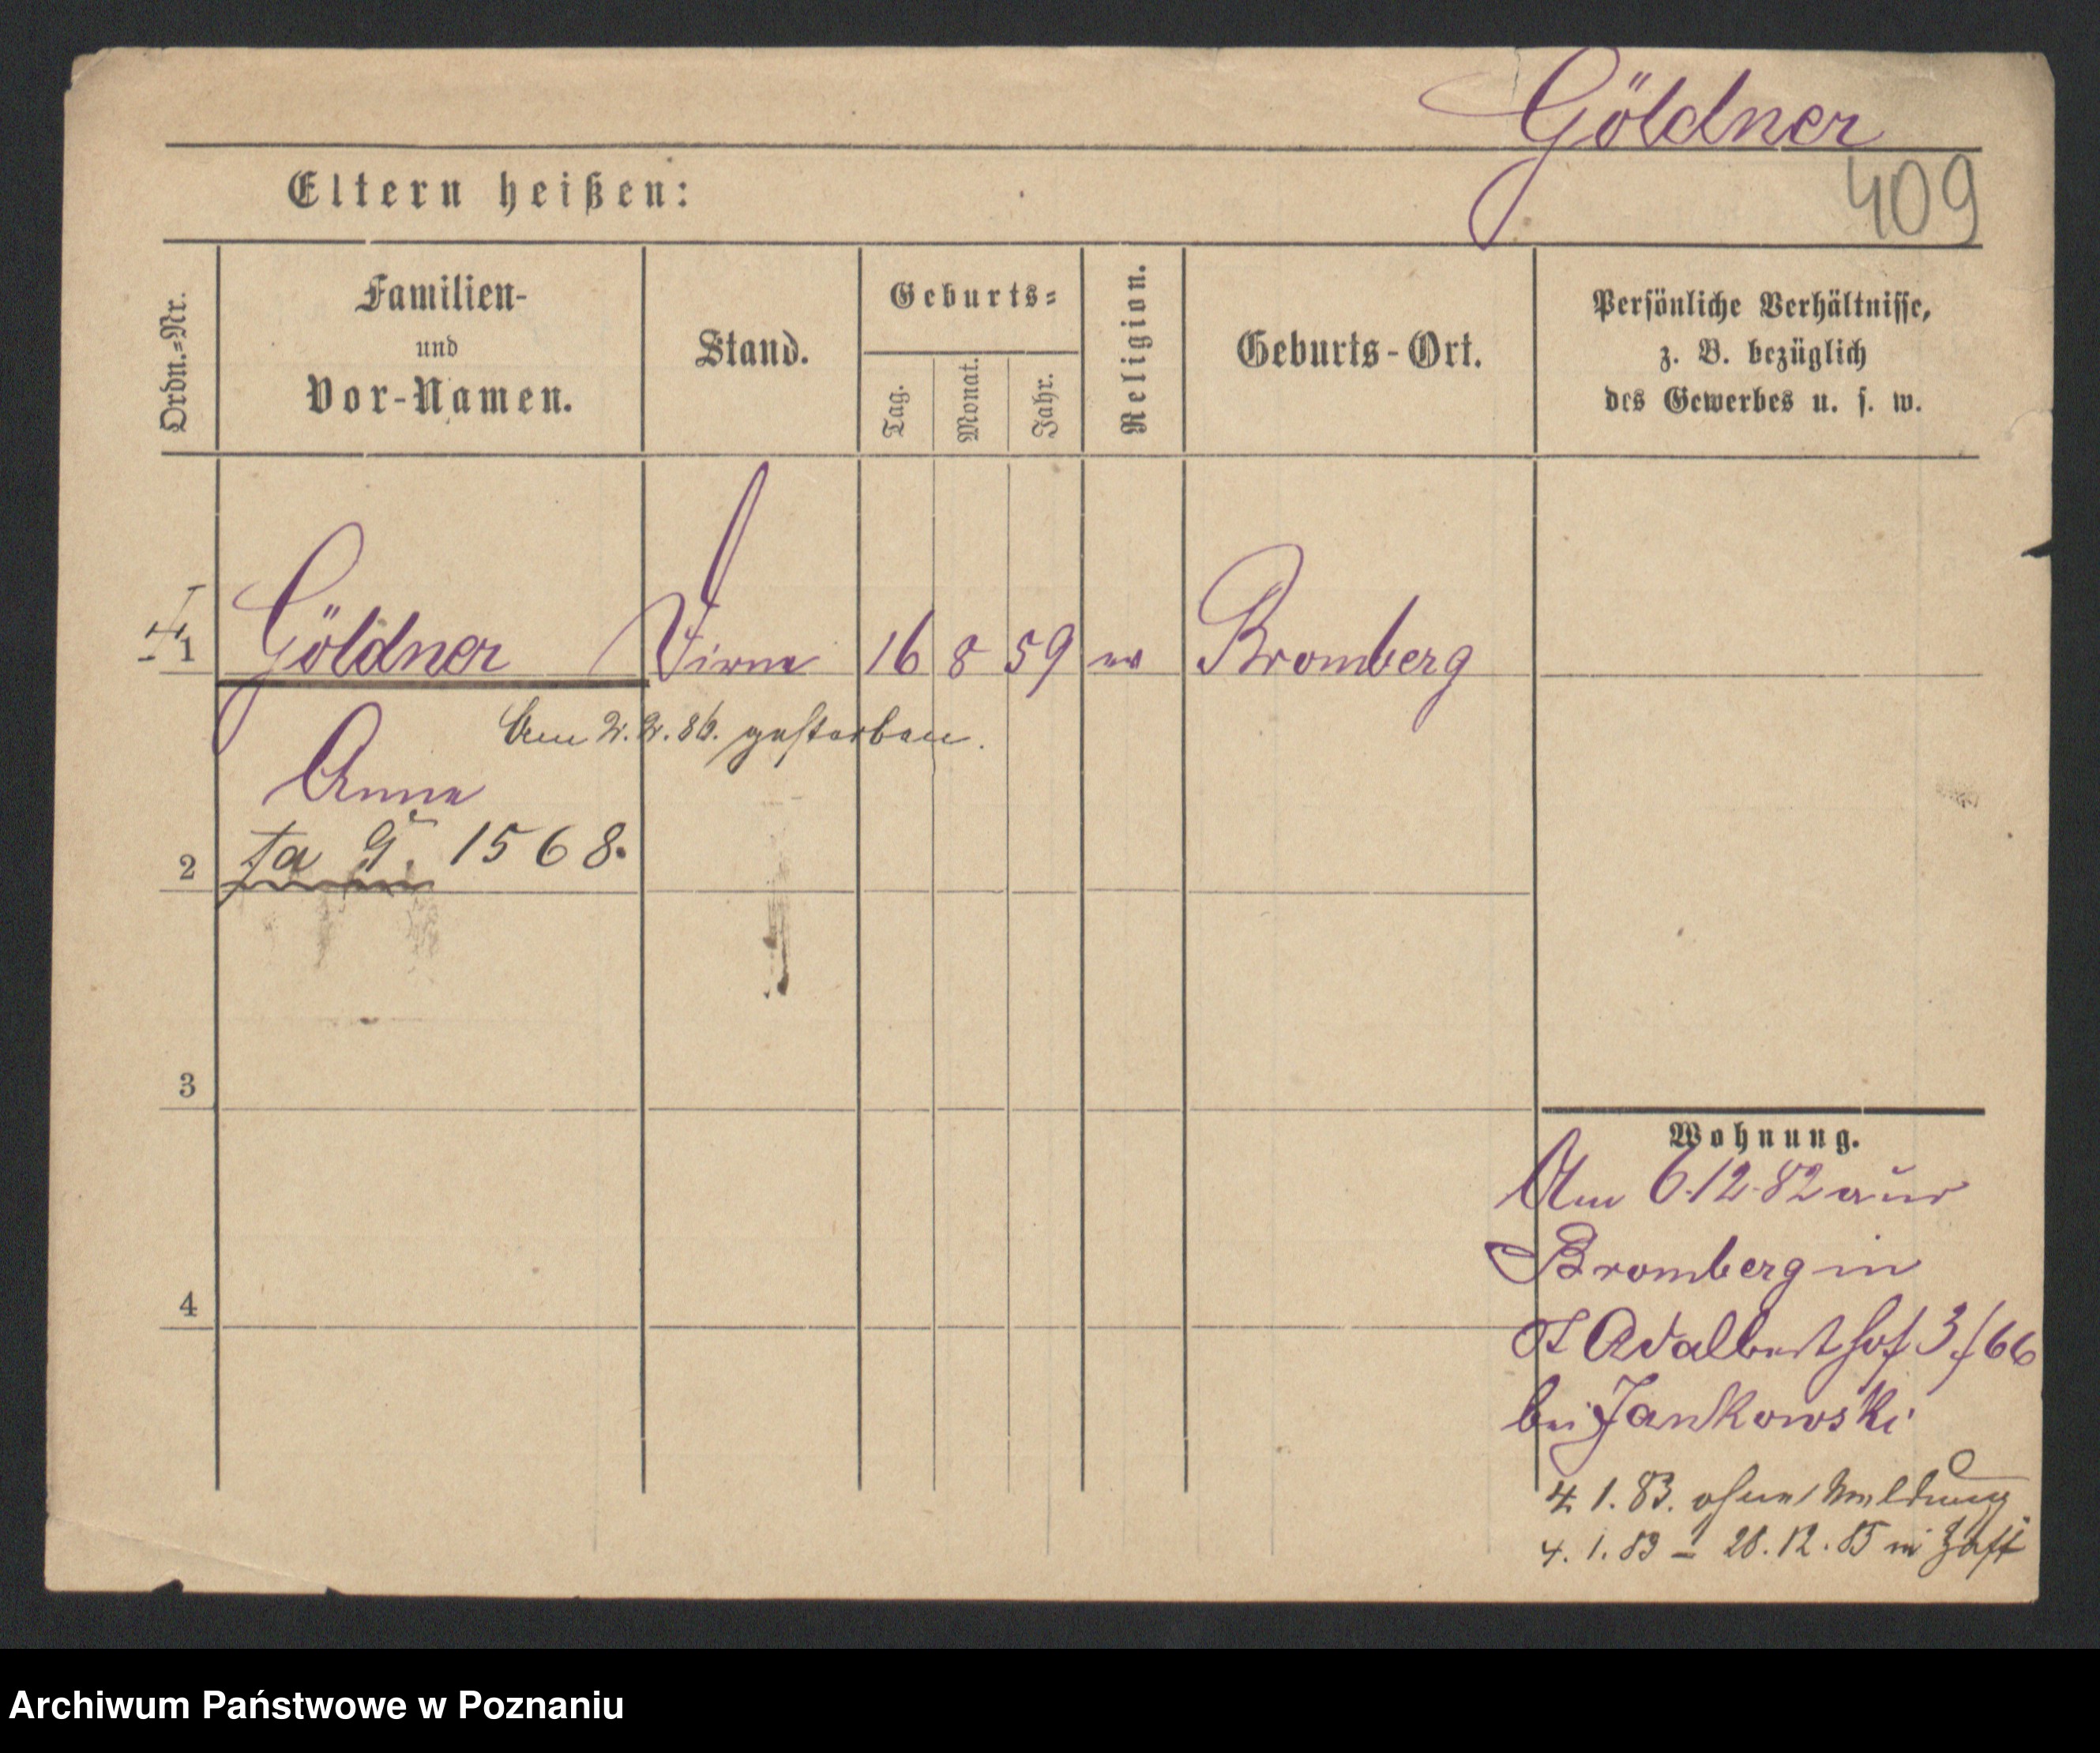 Göldner
409
Eltern heißen:
Ordn.-Nr.
Familien-
und
Vor-Namen.
Stand.
Geburts-
Tag.
Monat.
Jahr.
Religion.
Geburts-Ort.
Persönliche Verhältnisse,
z. B. bezüglich
des Gewerbes u. s. w.
1 Göldner Dirne 16 8 59 ev Bromberg
Am 2.2.86. gestorben.
Anna
2 G. 1568.
3
4
Wohnung.
Am 6.12.82 aus
Bromberg in
St Adalbert hof 3/66
bei Jankowski
4. 1. 83. ohne Meldung
4. 1. 83 – 28. 12. 85 in Haft
Archiwum Państwowe w Poznaniu